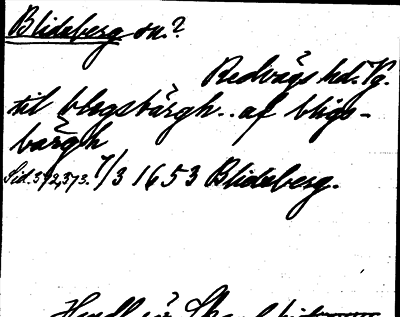 Blidsberg sn?
Redvägs hd. Vg.
til blogsbärgh.. af bligs-
bärgh
Sid. 372, 373. 7/3 1653 Blidsberg.